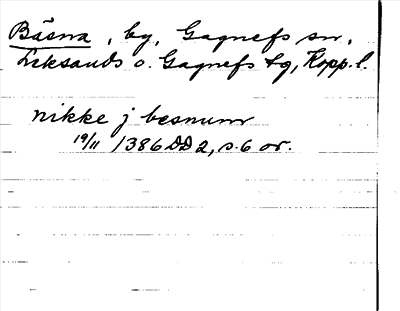 Bäsna, by, Gagnefs sn,
Leksands o. Gagnefs tg, Kopp. l.
nikke j besnum
19/11 1386 DD 2, s. 6 or.